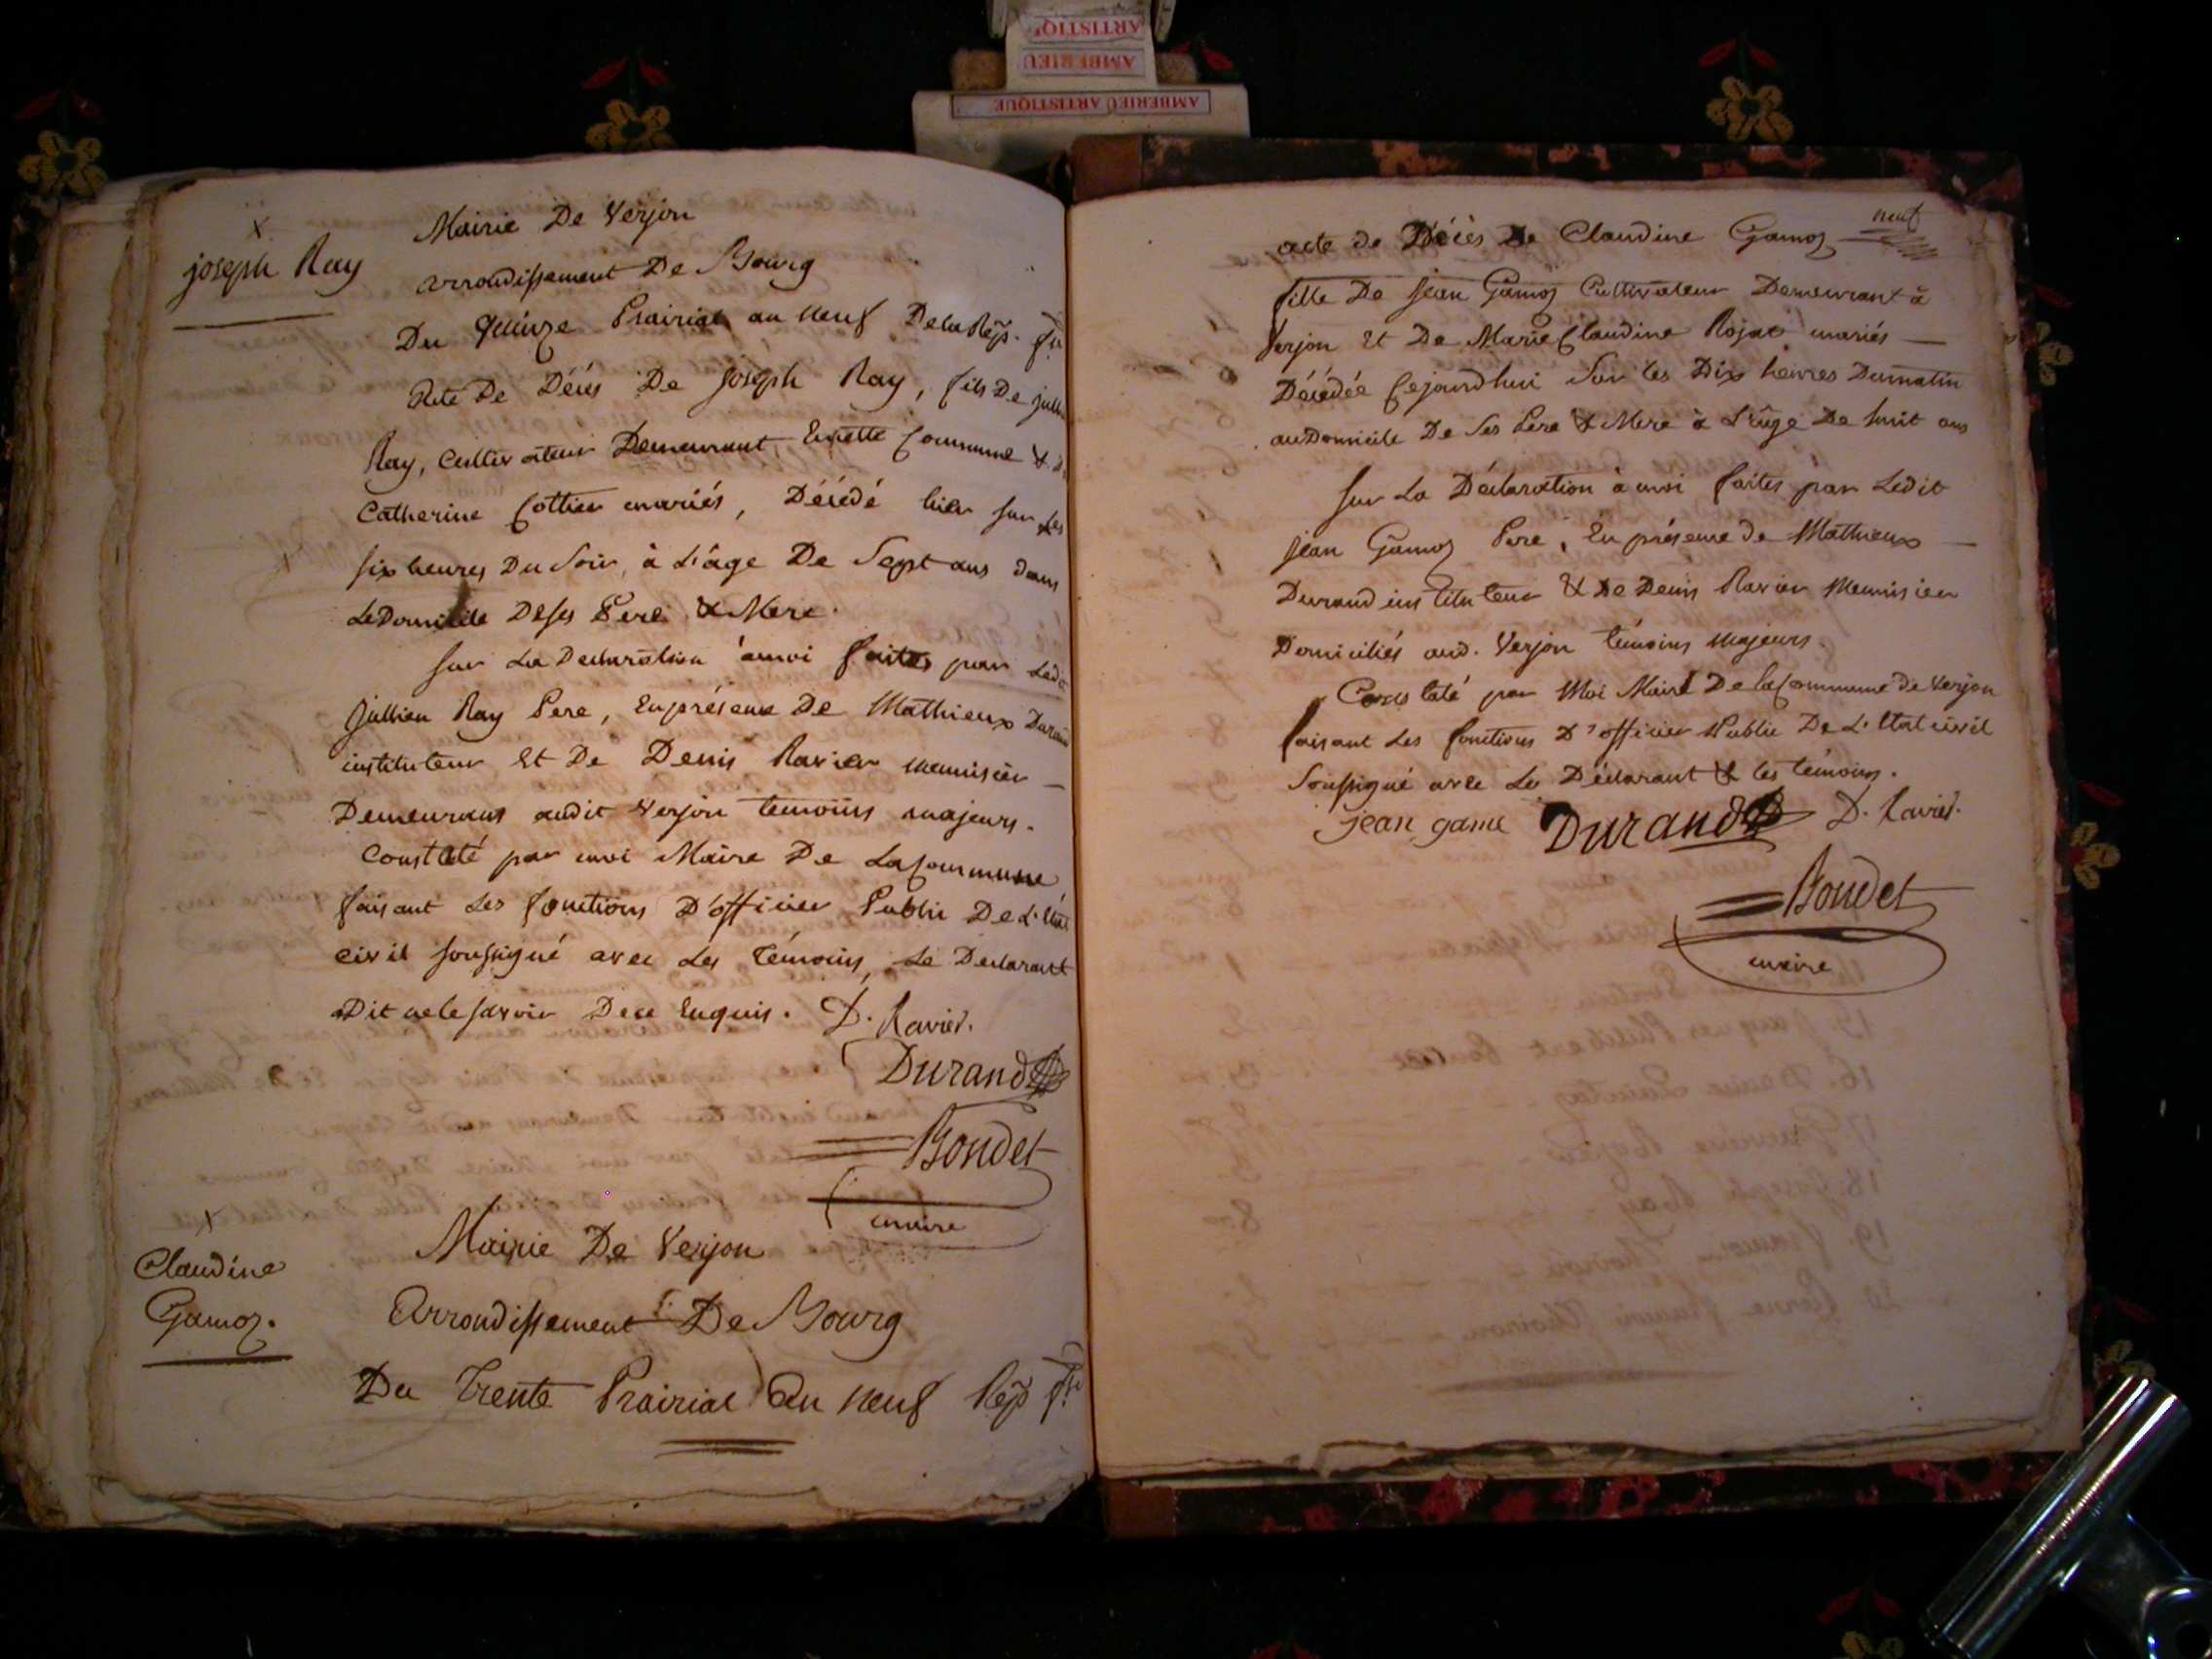 ARTISTIQ
AMBERIEU
AMBERIEU ARTISTIQUE
joseph Ray
Mairie De Verjon
arrondissement De Bourg
Du Quinze Prairial an neuf De la Rép. fse
Acte De Décés De Joseph Ray, fils De Jullien
Ray, Cultivateur Demeurant En cette Commune & de
Catherine Cottier mariés, Décédé hier sur les
six heures Du Soir, à L'âge De Sept ans dans
Le Domicile De ses Pere & Mere.
sur La Declaration à moi faites par Ledit
Jullien Ray Pere, En présence De Mathieux Durand
instituteur Et De Denis Ravier menuisier —
Demeurans audit Verjon temoins majeurs.
Constaté par moi Maire De La Commune
faisant Les fonctions D'officier Public De L'Etat
civil soussigné avec Les témoins, Le Declarant
a Dit ne le savoir De ce Enquis. D. Ravier.
Durand
Bondet
maire
Claudine
Gamoz.
Mairie De Verjon
Arrondissement De Bourg
Du Trente Prairial an neuf Rép fse
neuf
acte de Décès De Claudine Gamoz
fille De Jean Gamoz Cultivateur Demeurant à
Verjon Et De Marie Claudine Rojat mariés —
Décédée Cejourdhui Sur les Dix heures Dumatin
au Domicile De Ses Pere & Mere à L'âge De huit ans
Sur La Déclaration à moi faites par Ledit
Jean Gamoz Pere, En présence de Mathieux —
Durand instituteur & De Denis Ravier Menuisier
Domiciliés aud. Verjon témoins majeurs.
Constaté par Moi Maire De la Commune de Verjon
faisant Les fonctions D'officier Public De L'Etat civil
Soussigné avec Le Déclarant & les témoins.
jean game Durand D. Ravier.
Bondet
maire